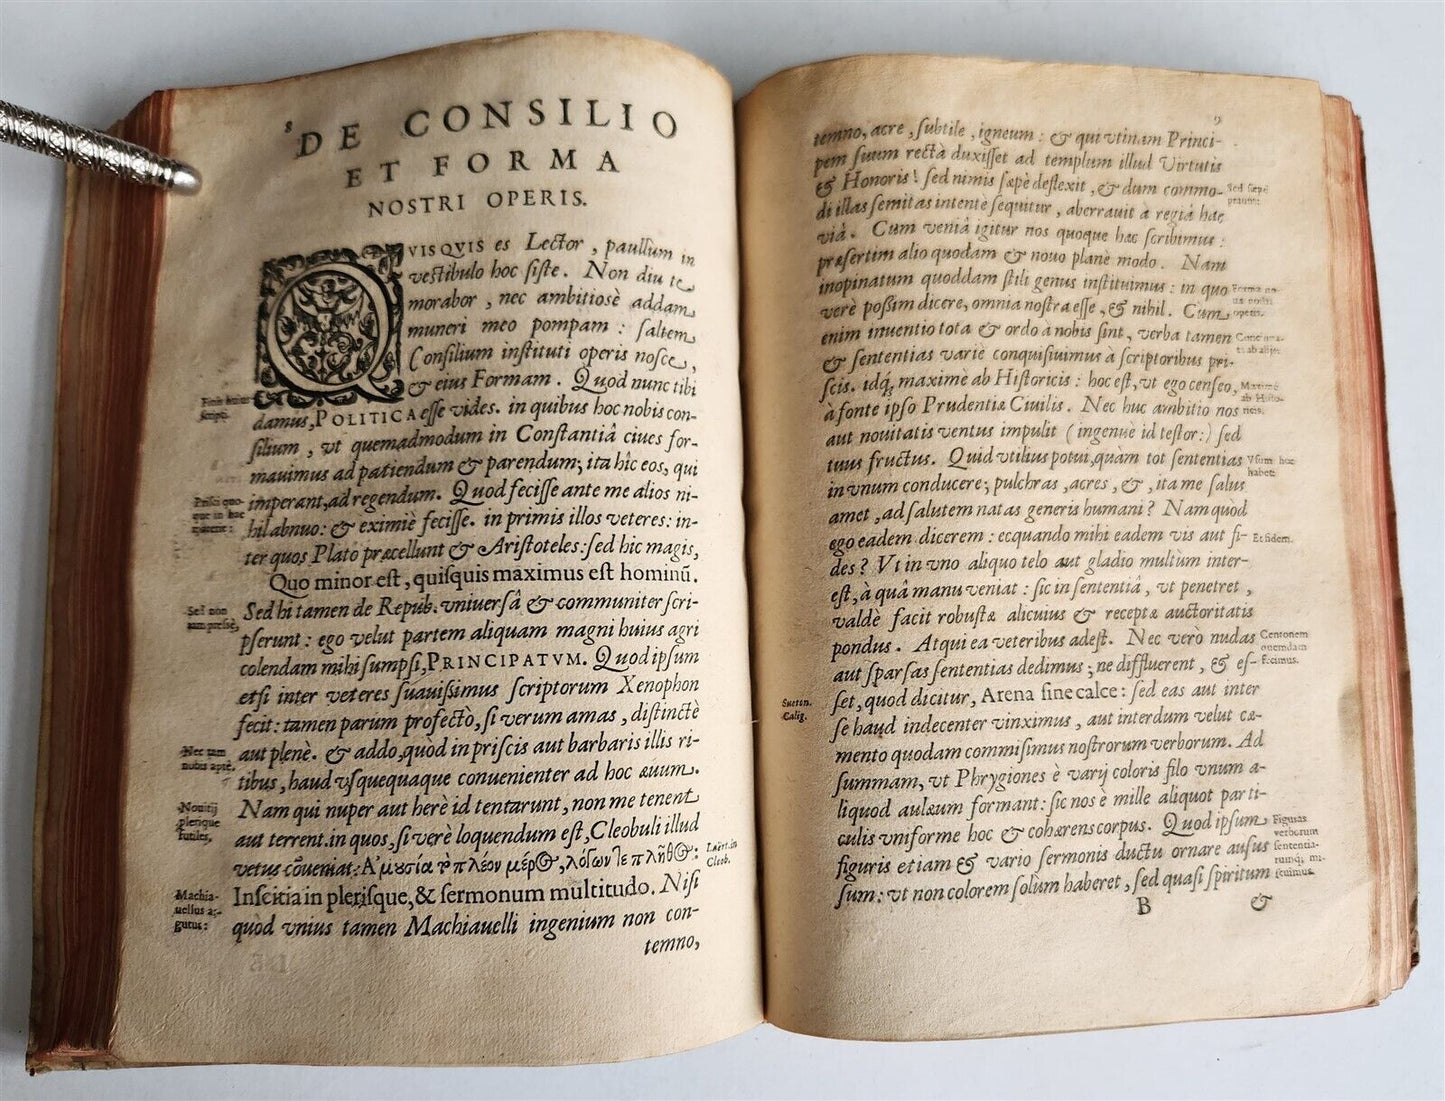 8
DE CONSILIO
ET FORMA
NOSTRI OPERIS.
QVISQVIS es Lector, paullùm in
vestibulo hoc siste. Non diu te
morabor, nec ambitiosè addam
muneri meo pompam: saltem
Consilium instituti operis nosce,
& eius Formam. Quod nunc tibi
damus, POLITICA esse vides. in quibus hoc nobis con-
silium, vt quemadmodum in Constantiâ ciues for-
mauimus ad patiendum & parendum; ita hîc eos, qui
imperant, ad regendum. Quod fecisse ante me alios ni-
hil abnuo: & eximiè fecisse. in primis illos veteres: in-
ter quos Plato præcellunt & Aristoteles: sed hic magis,
Quo minor est, quisquis maximus est hominū.
Sed hi tamen de Repub. vniuersâ & communiter scri-
pserunt: ego velut partem aliquam magni huius agri
colendam mihi sumpsi, PRINCIPATVM. Quod ipsum
etsi inter veteres suauissimus scriptorum Xenophon
fecit: tamen parum profectò, si verum amas, distinctè
aut plenè. & addo, quòd in priscis aut barbaris illis ri-
tibus, haud vsquequaque conuenienter ad hoc æuum.
Nam qui nuper aut herè id tentarunt, non me tenent
aut terrent. in quos, si verè loquendum est, Cleobuli illud
vetus cōueniat: Ἀμουσία τὸ πλέον μέρος, λόγων τε πλῆθος:
Inscitia in plerisque, & sermonum multitudo. Nisi
quòd vnius tamen Machiauelli ingenium non con-
temno,
Finis huius
scripti.
Prisci quo-
que in hac
materie:
Sed non
tam pressè,
Nec tam
nobis aptè.
Nouitij
plerique
futiles,
Machia-
uellus ar-
gutus:
Laërt. in
Cleob.
9
temno, acre, subtile, igneum: & qui vtinam Princi-
pem suum rectà duxisset ad templum illud Virtutis
& Honoris! sed nimis sæpè deflexit, & dum commo-
di illas semitas intentè sequitur, aberrauit à regiâ hac
viâ. Cum veniâ igitur nos quoque hæc scribimus:
præsertim alio quodam & nouo planè modo. Nam
inopinatum quoddam stili genus instituimus: in quo
verè possim dicere, omnia nostra esse, & nihil. Cum
enim inuentio tota & ordo à nobis sint, verba tamen
& sententias variè conquisiuimus à scriptoribus pri-
scis. idq́; maximè ab Historicis: hoc est, vt ego censeo,
à fonte ipso Prudentiæ Ciuilis. Nec huc ambitio nos
aut nouitatis ventus impulit (ingenuè id testor:) sed
tuus fructus. Quid vtilius potui, quam tot sententias
in vnum conducere; pulchras, acres, &, ita me Salus
amet, ad salutem natas generis humani? Nam quòd
ego eadem dicerem: ecquando mihi eadem vis aut fi-
des? Vt in vno aliquo telo aut gladio multùm inter-
est, à quâ manu veniat: sic in sententiâ, vt penetret,
valdè facit robustæ alicuius & receptæ auctoritatis
pondus. Atqui ea veteribus adest. Nec verò nudas
aut sparsas sententias dedimus; ne diffluerent, & es-
set, quod dicitur, Arena sine calce: sed eas aut inter
se haud indecenter vinximus, aut interdum velut cæ-
mento quodam commisimus nostrorum verborum. Ad
summam, vt Phrygiones è varij coloris filo vnum a-
liquod aulæum formant: sic nos è mille aliquot parti-
culis vniforme hoc & cohærens corpus. Quod ipsum
figuris etiam & vario sermonis ductu ornare ausus
sum: vt non colorem solùm haberet, sed quasi spiritum
B &
Sed sæpè
prauus:
Forma no-
ua nostri
operis.
Maximè
ab Histo-
ricis.
Vsum hoc
habet:
Et fidem.
Centonem
quemdam
fecimus.
Sueton.
Calig.
Figuras
verborum
sententia-
rumq; mi-
scuimus.